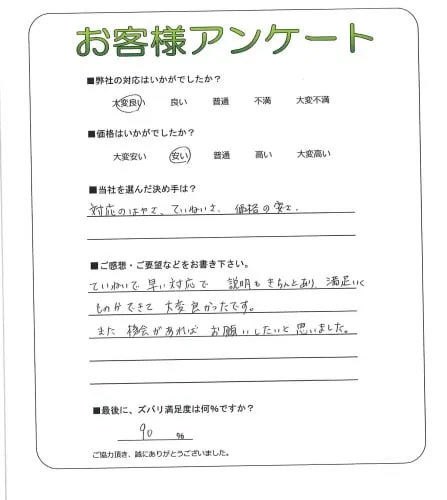 お客様アンケート
■弊社の対応はいかがでしたか？
大変良い 良い 普通 不満 大変不満
■価格はいかがでしたか？
大変安い 安い 普通 高い 大変高い
■当社を選んだ決め手は？
対応のはやさ、ていねいさ、価格の安さ、
■ご感想・ご要望などをお書き下さい。
ていねいで早い対応で 説明もきちんとあり 満足いく
ものができて 大変良かったです。
また 機会があれば お願いしたいと思いました。
■最後に、ズバリ満足度は何％ですか？
90 ％
ご協力頂き、誠にありがとうございました。